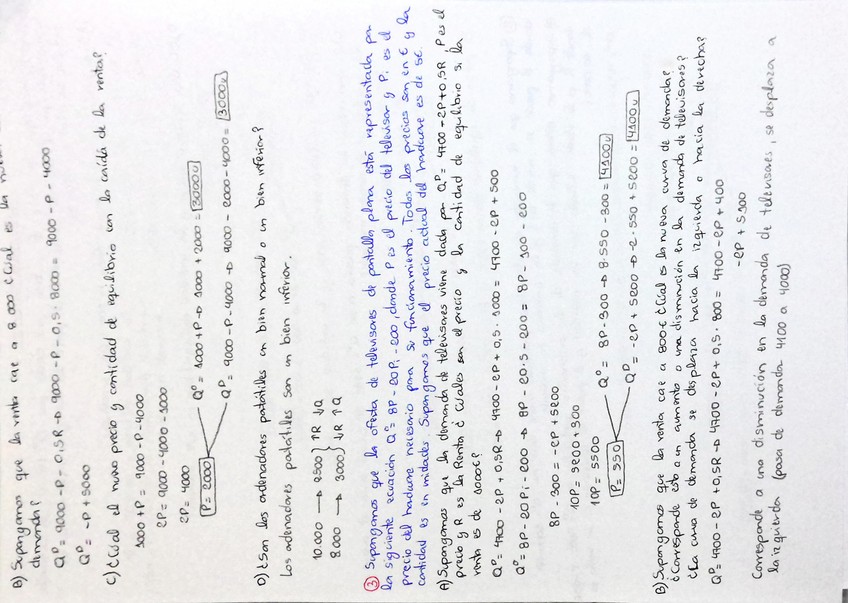 B) Supongamos que la renta cae a 8.000 ¿Cuál es la
demanda?
Qᴰ = 9000 - P - 0,5R → 9000 - P - 0,5 · 8000 = 9000 - P - 4000
Qᴰ = -P + 5000
C) ¿Cuál el nuevo precio y cantidad de equilibrio con la caída de la renta?
1000 + P = 9000 - P - 4000
2P = 9000 - 4000 - 1000
2P = 4000
P = 2000
Qᴼ = 1000 + P → 1000 + 2000 = 3000u
Qᴰ = 9000 - P - 4000 → 9000 - 2000 - 4000 = 3000u
D) ¿Son los ordenadores portátiles un bien normal o un bien inferior?
Los ordenadores portátiles son un bien inferior.
10.000 → 2500 } ↑R ↓Q
8.000 → 3000 } ↓R ↑Q
③ Supongamos que la oferta de televisores de pantalla plana está representada por
la siguiente ecuación Qᴼ = 8P - 20Pi - 200, donde P es el precio del televisor y Pi es el
precio del hardware necesario para su funcionamiento. Todos los precios son en € y la
cantidad es en unidades. Supongamos que el precio actual del hardware es de 5€.
A) Supongamos que la demanda de televisores viene dada por Qᴰ = 4700 - 2P + 0,5R, P es el
precio y R es la Renta ¿Cuáles son el precio y la cantidad de equilibrio si la
renta es de 1000€?
Qᴰ = 4700 - 2P + 0,5R → 4700 - 2P + 0,5 · 1000 = 4700 - 2P + 500
Qᴼ = 8P - 20Pi - 200 → 8P - 20·5 - 200 = 8P - 100 - 200
8P - 300 = -2P + 5200
10P = 5200 + 300
10P = 5500
P = 550
Qᴼ = 8P - 300 → 8·550 - 300 = 4100u
Qᴰ = -2P + 5200 → -2·550 + 5200 = 4100u
B) Supongamos que la renta cae a 800€ ¿Cuál es la nueva curva de demanda?
¿Corresponde esto a un aumento o una disminución en la demanda de televisores?
¿La curva de demanda se desplaza hacia la izquierda o hacia la derecha?
Qᴰ = 4700 - 2P + 0,5R → 4700 - 2P + 0,5 · 800 = 4700 - 2P + 400
-2P + 5100
Corresponde a una disminución en la demanda de televisores, se desplaza a
la izquierda (pasa de demanda 4100 a 4000)